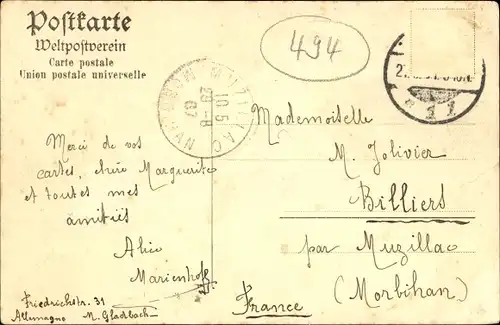 Postkarte
Weltpostverein
Carte postale
Union postale universelle
494
MUZILLAC
MORBIHAN
10 5
29 -8
07
Mademoiselle
M. Jolivier
Billiers
par Muzillac
(Morbihan)
France
Merci de vos
cartes, chère Marguerite
et toutes mes
amitiés
Alice
Marienhoff
Friedrichstr. 31
Allemagne M. Gladbach